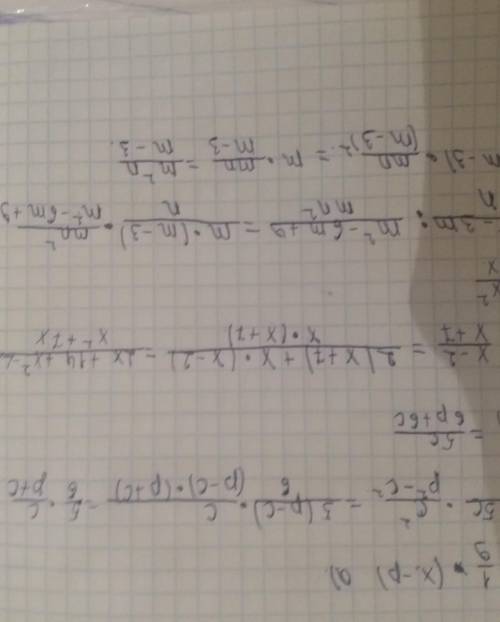 1/9 • (x.-p) a)
5c • c²/p²-c² = 3(p-c)/6 • c/(p-c)•(p+c) = 5/6 • c/p+c
= 5c/6p+6c
x-2/x+7 = 2(x+7)+x•(x-2)/x•(x+7) = 2x+14+x²-2/x²+7x
x²/x
-3m/n • m²-6m+9/mn² = m•(m-3)/n • mn²/m²-6m+9
m-3)• mn/(m-3)² = m • mn/m-3 = m²n/m-3.